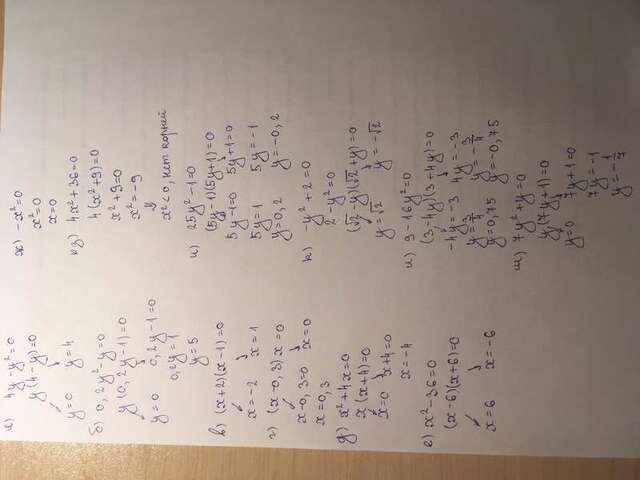 а) 4y-y²=0
y(4-y)=0
y=0 y=4
б) 0,2y²-y=0
y(0,2y-1)=0
y=0 0,2y-1=0
0,2y=1
y=5
в) (x+2)(x-1)=0
x=-2 x=1
г) (x-0,3)x=0
x-0,3=0 x=0
x=0,3
д) x²+4x=0
x(x+4)=0
x=0 x+4=0
x=-4
е) x²-36=0
(x-6)(x+6)=0
x=6 x=-6
ж) -x²=0
x²=0
x=0
з) 4x²+36=0
4(x²+9)=0
x²+9=0
x²=-9
x²<0, нет корней
и) 25y²-1=0
(5y-1)(5y+1)=0
5y-1=0 5y+1=0
5y=1 5y=-1
y=0,2 y=-0,2
к) -y²+2=0
2-y²=0
(√2-y)(√2+y)=0
y=√2 y=-√2
л) 9-16y²=0
(3-4y)(3-4y)=0
-4y=-3 4y=-3
y=3/4 y=-3/4
y=0,75 y=-0,75
м) 7y²+y=0
y(7y+1)=0
y=0 7y+1=0
7y=-1
y=-1/7